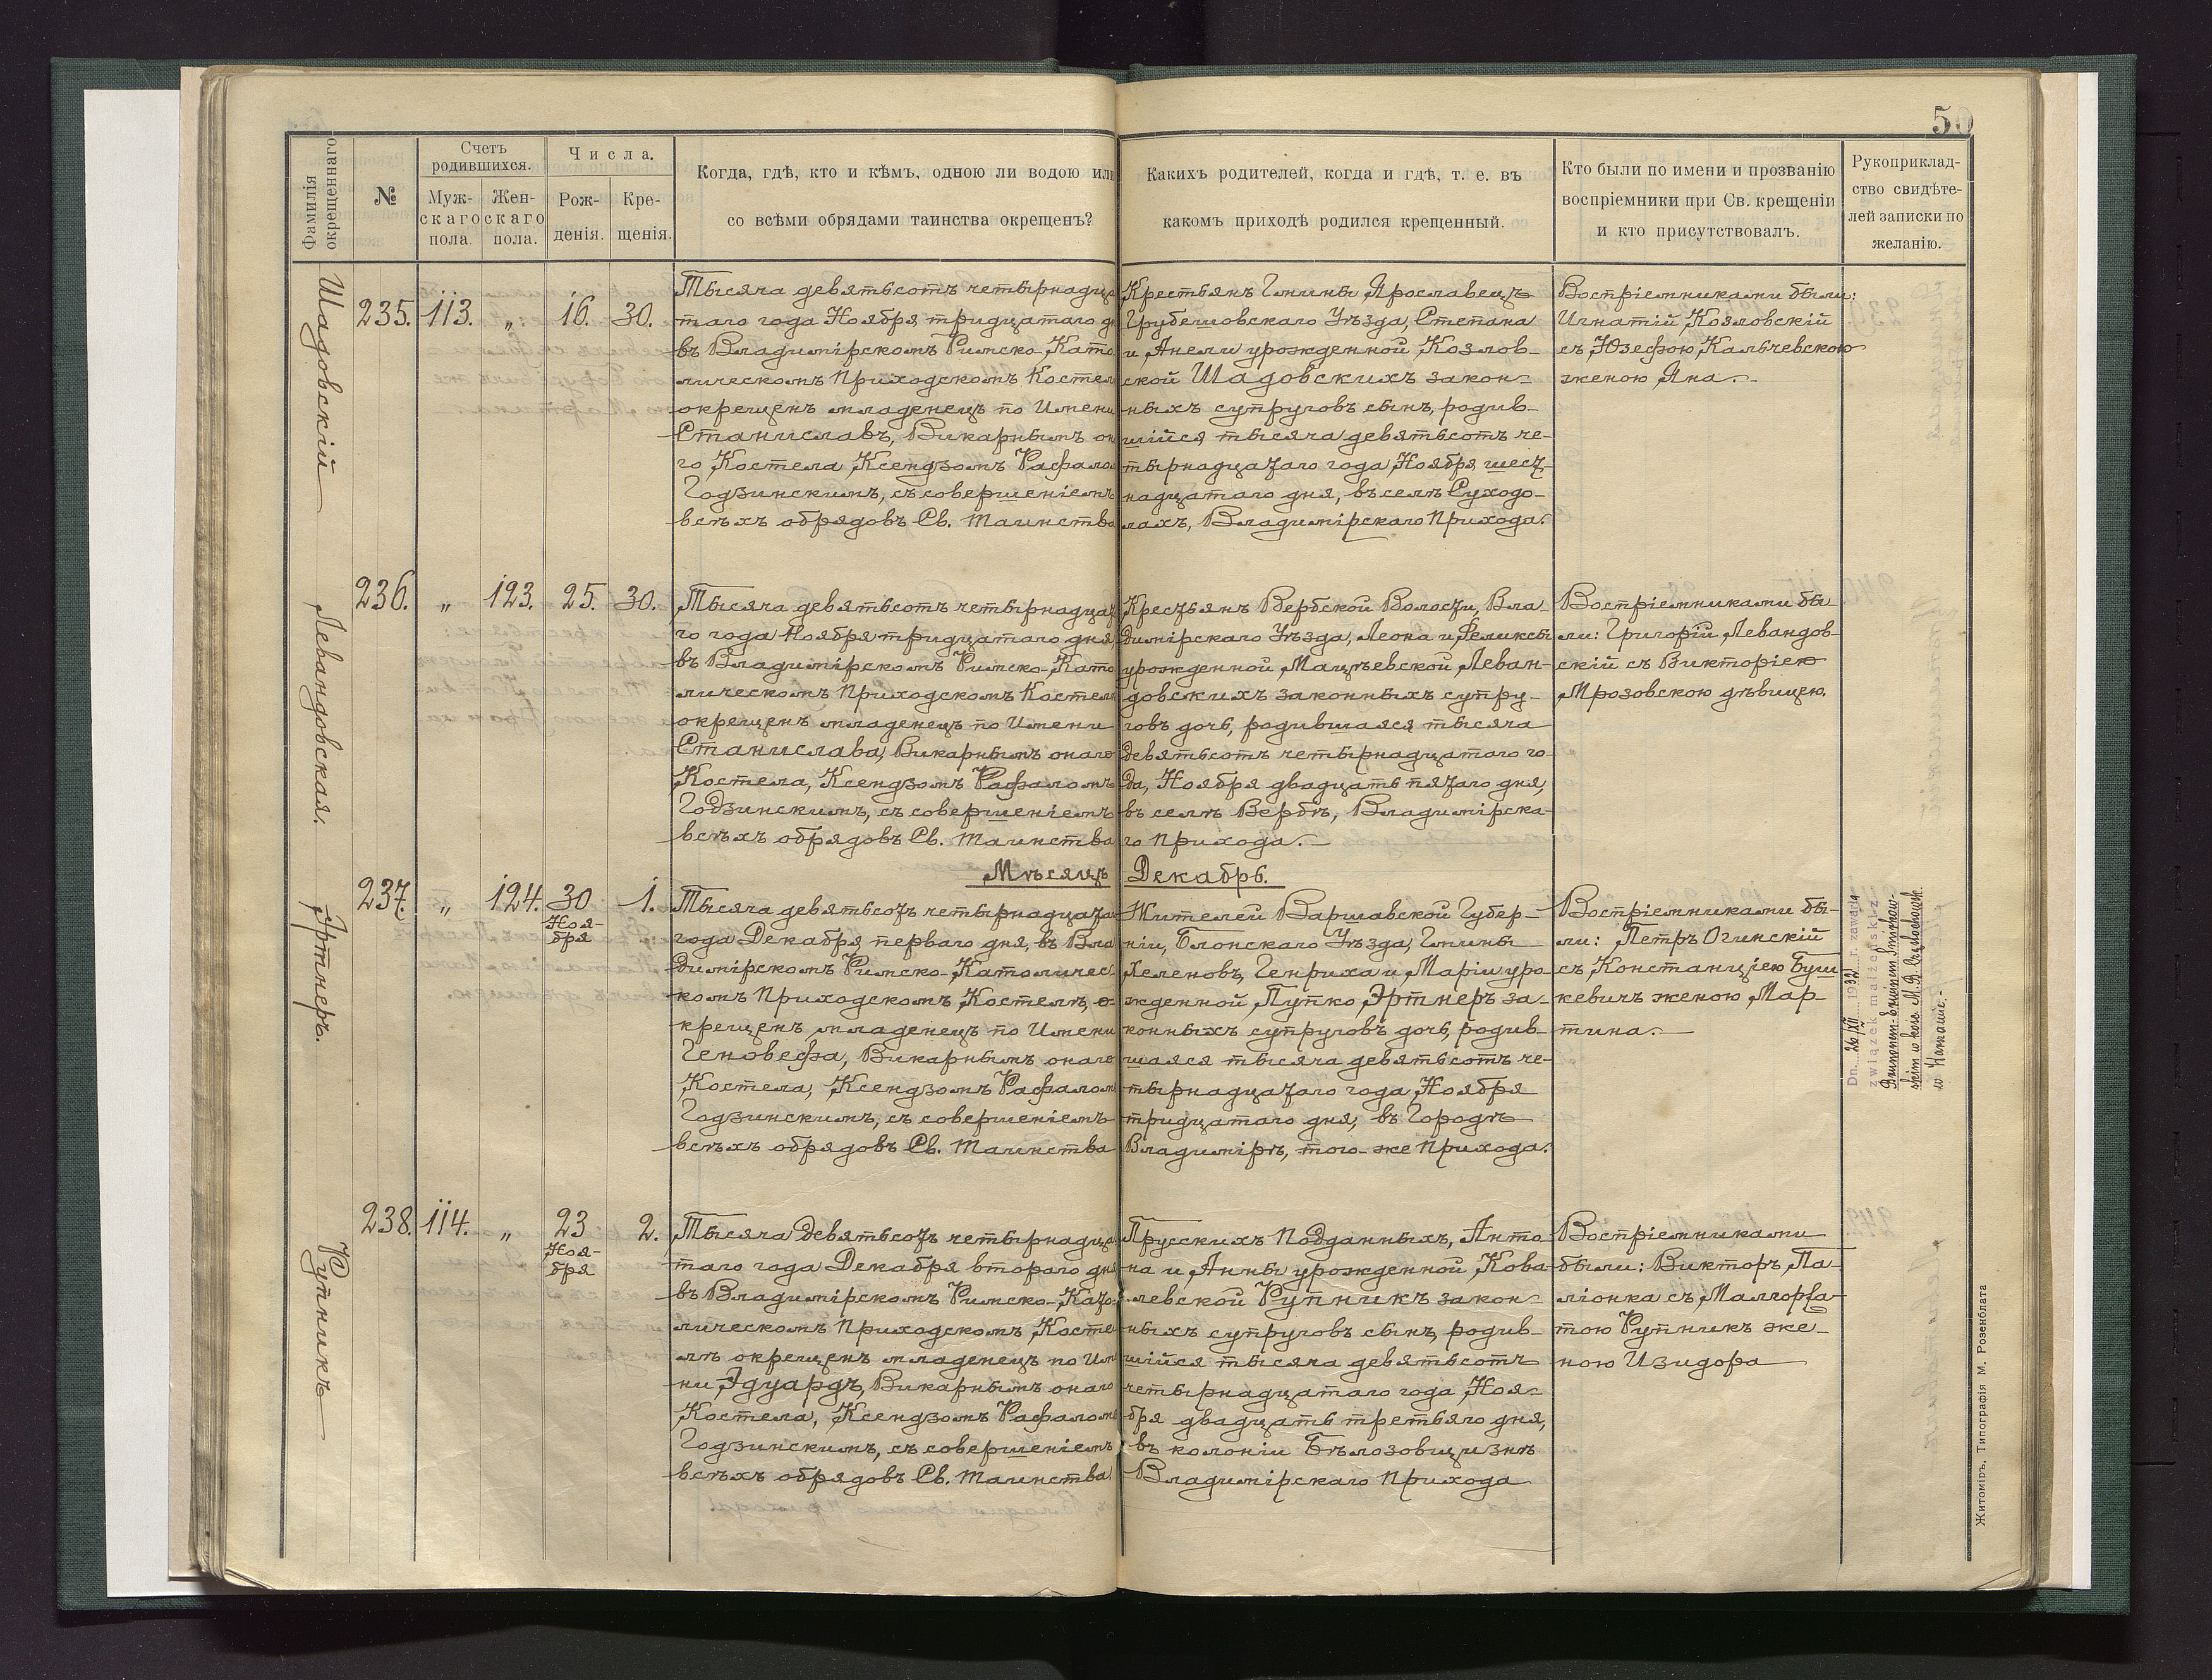 50
Фамилія окрещеннаго
№
Счетъ родившихся.
Муж-
скаго
пола.
Жен-
скаго
пола.
Числа.
Рож-
денія.
Кре-
щенія.
Когда, гдѣ, кто и кѣмъ, одною ли водою или
со всѣми обрядами таинства окрещенъ?
Какихъ родителей, когда и гдѣ, т. е. въ
какомъ приходѣ родился крещенный.
Кто были по имени и прозванію
воспріемники при Св. крещеніи
и кто присутствовалъ.
Рукоприклад-
ство свидѣте-
лей записки по
желанію.
Шадовскій
235. 113. „ 16. 30.
Тысяча девятьсотъ четырнадца
таго года Ноября тридцатаго д
въ Владимірскомъ Римско-Като
лическомъ Приходскомъ Костел
окрещенъ младенецъ по Имени
Станиславъ, Викарнымъ он
го Костела Ксендзомъ Рафало
Годзинскимъ, съ совершеніемъ
всѣхъ обрядовъ Св. Таинства
Крестьянъ Гмины Ярославецъ
Грубешовскаго Уѣзда, Степана
и Анели урожденной Козлов-
ской Шадовскихъ закон-
ныхъ супруговъ сынъ, родив-
шійся тысяча девятьсотъ че-
тырнадцатаго года Ноября шест-
надцатаго дня, въ селѣ Суходо-
лахъ, Владимірскаго Прихода.
Воспріемниками были:
Игнатій Козловскій
съ Юзефою Кальчевскою
женою Яна.
Левандовская.
236. „ 123. 25. 30.
Тысяча девятьсотъ четырнадцат
го года Ноября тридцатаго дня,
въ Владимірскомъ Римско-Като
лическомъ Приходскомъ Костел
окрещенъ младенецъ по Имени
Станислава, Викарнымъ онаго
Костела, Ксендзомъ Рафаломъ
Годзинскимъ, съ совершеніемъ
всѣхъ обрядовъ Св. Таинства
Крестьянъ Вербской Волости, Вла-
димірскаго Уѣзда, Леона и Феликсы
урожденной Мацѣевской Леван-
довскихъ законныхъ супру-
говъ дочь, родившаяся тысяча
девятьсотъ четырнадцатаго го-
да, Ноября двадцать пятаго дня,
въ селѣ Вербѣ, Владимірска-
го Прихода.
Воспріемниками бы-
ли: Григорій Левандов-
скій съ Викторіею
Мрозовскою дѣвицею.
Мѣсяцъ Декабрь.
Эртнеръ.
237. „ 124. 30 Ноя-
бря 1.
Тысяча девятьсотъ четырнадцата
года Декабря перваго дня, въ Вла
димірскомъ Римско-Католичес-
комъ Приходскомъ Костелѣ, о-
крещенъ младенецъ по Имени
Геновефа, Викарнымъ онаго
Костела, Ксендзомъ Рафалом
Годзинскимъ, съ совершеніемъ
всѣхъ обрядовъ Св. Таинства
Жителей Варшавской Губер-
ніи, Блонскаго Уѣзда, Гмины
Хеленовъ, Генриха и Маріи уро-
жденной Пупко Эртнеръ за-
конныхъ супруговъ дочь, родив-
шаяся тысяча девятьсотъ че-
тырнадцатаго года Ноября
тридцатаго дня, въ Городѣ
Владимірѣ, того-же Прихода.
Воспріемниками бы-
ли: Петръ Огинскій
съ Констанціею Буш
кевичъ женою Мар-
тина.
Dn. 26/XII 1932 r. zawarła
związek małżeński z
w Warszawie.-
Рупникъ
238. 114. „ 23 Ноя-
бря 2.
Тысяча девятьсотъ четырнадца
таго года Декабря втораго дня
въ Владимірскомъ Римско-Като
лическомъ Приходскомъ Косте
лѣ окрещенъ младенецъ по Име
ни Эдуардъ, Викарнымъ онаго
Костела, Ксендзомъ Рафаломъ
Годзинскимъ, съ совершеніемъ
всѣхъ обрядовъ Св. Таинства.
Прусскихъ Подданныхъ, Анто
на и Анны урожденной Кова-
левской Рупникъ закон-
ныхъ супруговъ сынъ, родив-
шійся тысяча девятьсотъ
четырнадцатаго года Ноя-
бря двадцать третьяго дня,
въ колоніи Бѣлозовщизнѣ
Владимірскаго Прихода
Воспріемниками
были: Викторъ Па-
ліонка съ Малгорза-
тою Рупникъ же-
ною Изидора
Житоміръ, Типографія М. Розенблата